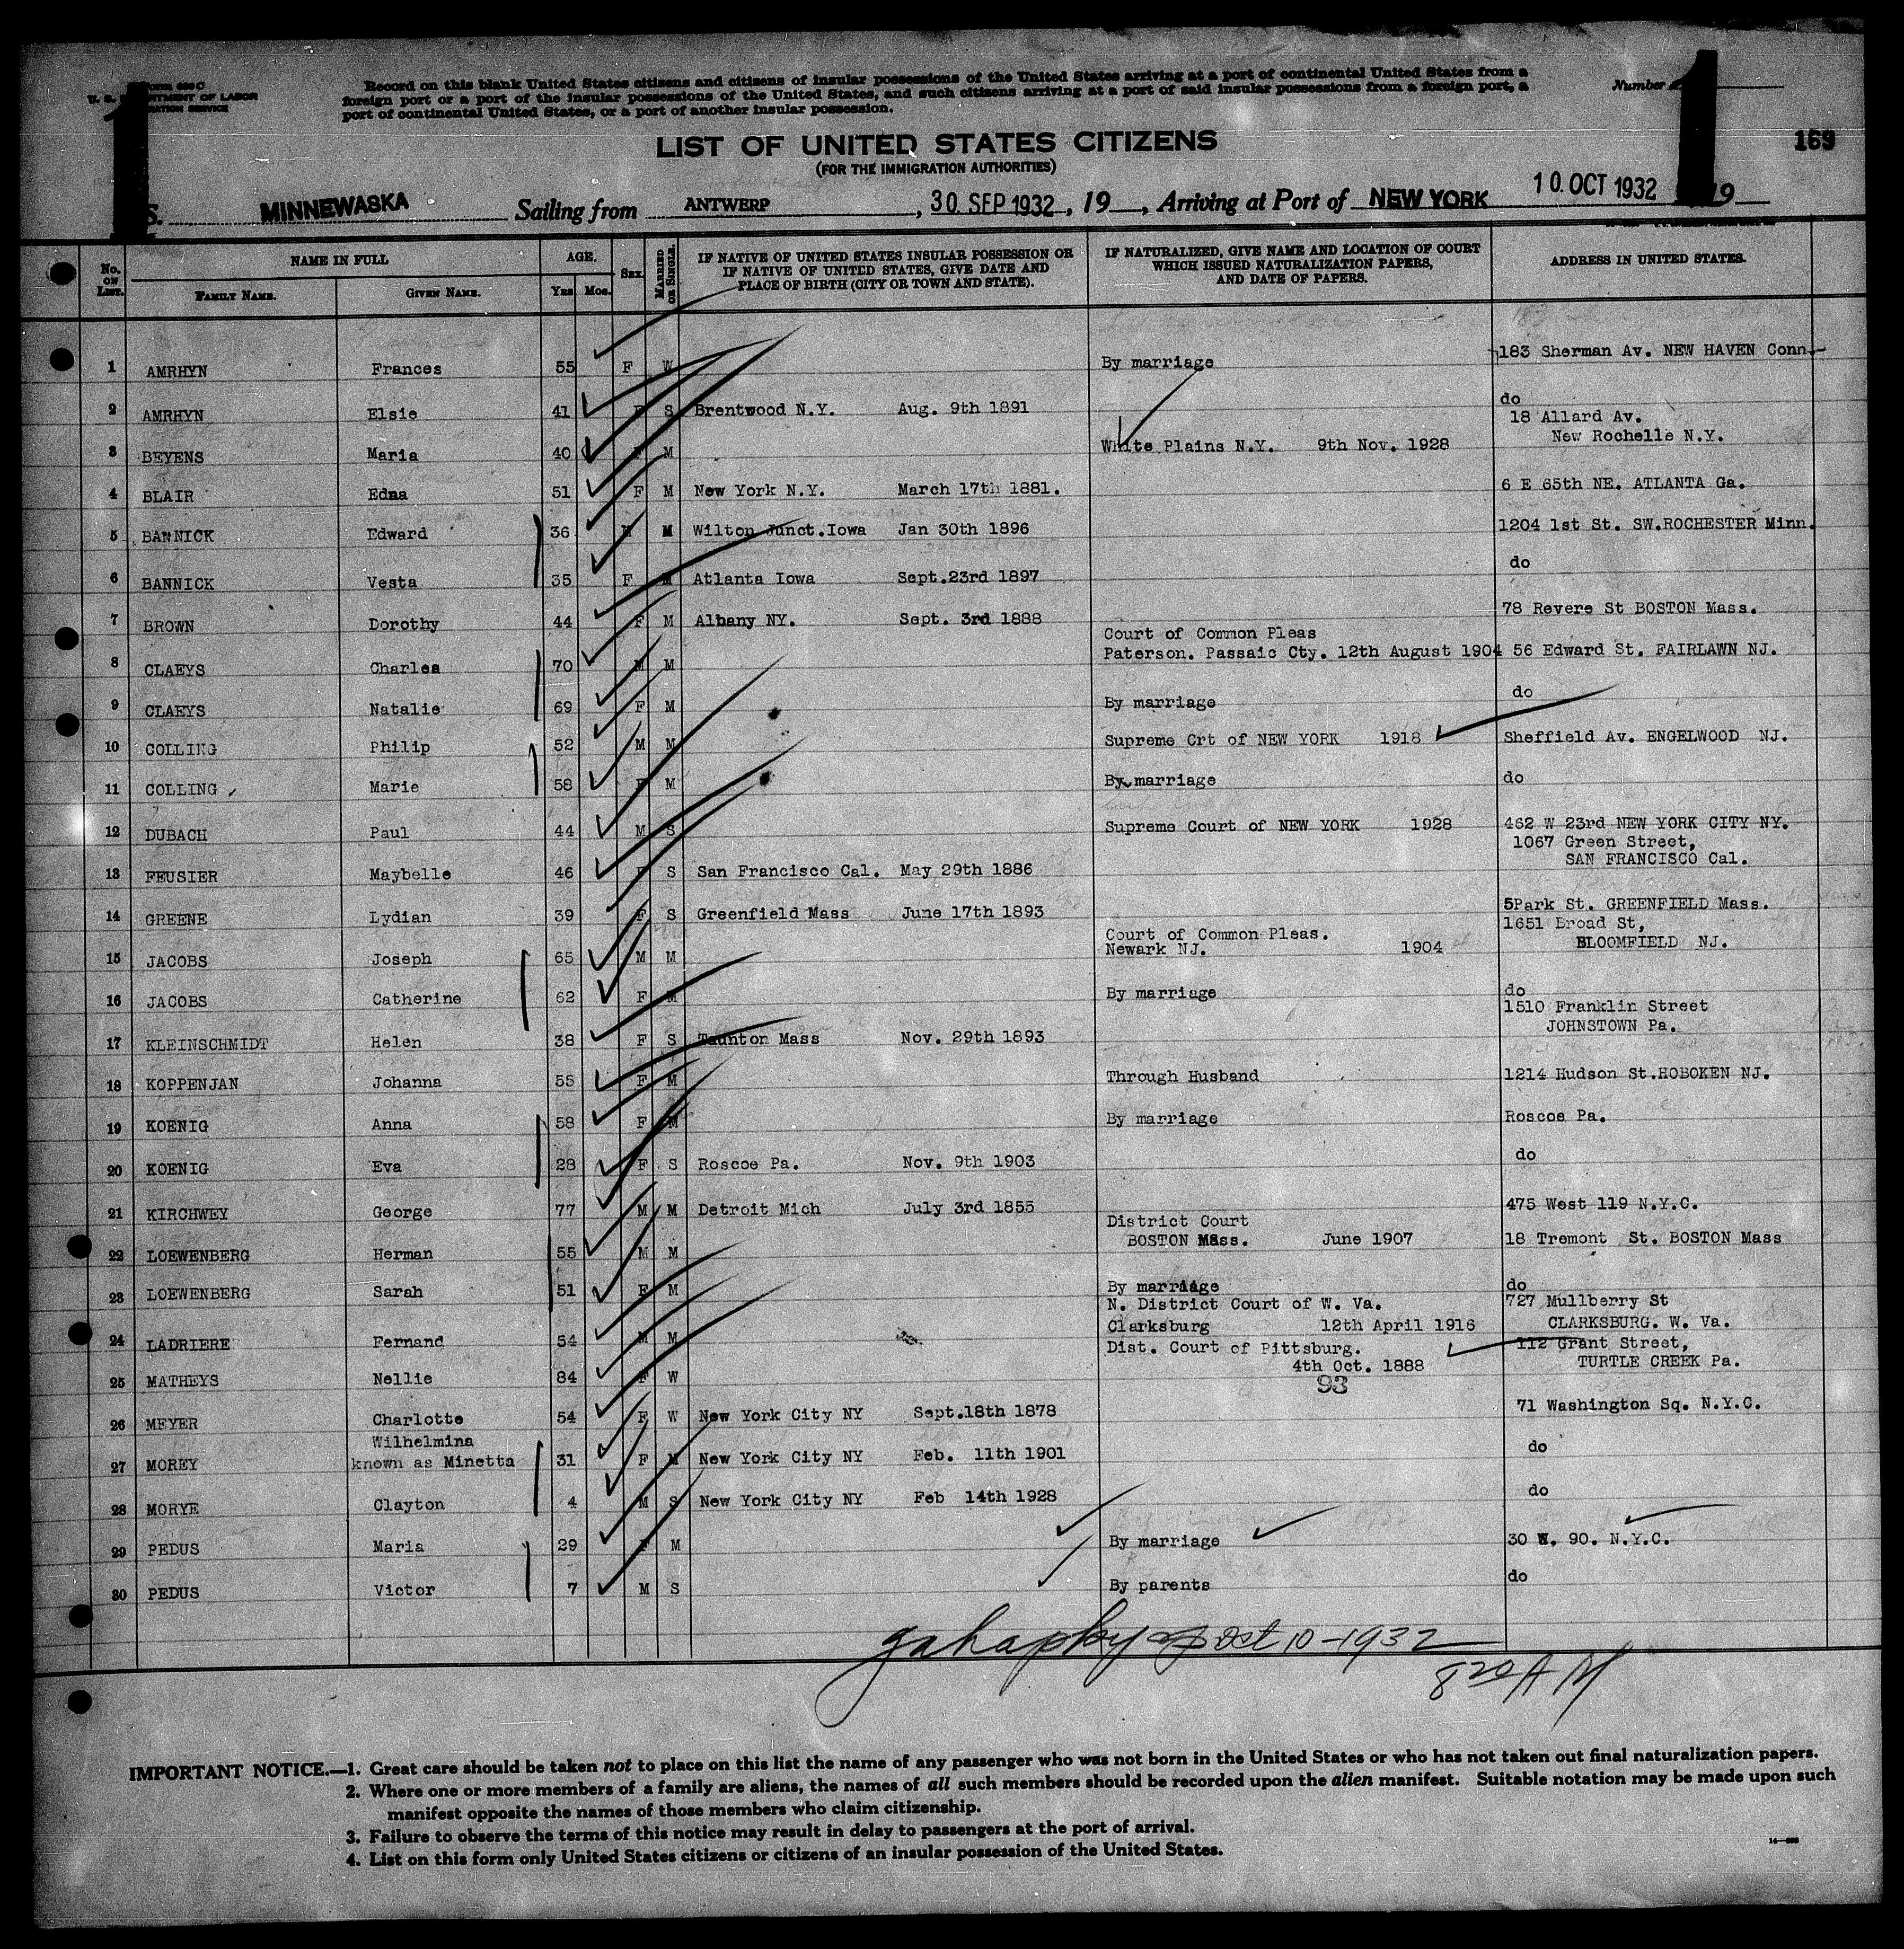 Form 630 C
U. S. DEPARTMENT OF LABOR
IMMIGRATION SERVICE
Record on this blank United States citizens and citizens of insular possessions of the United States arriving at a port of continental United States from a
foreign port or a port of the insular possessions of the United States, and such citizens arriving at a port of said insular possessions from a foreign port, a
port of continental United States, or a port of another insular possession.
Number
1
1
169
LIST OF UNITED STATES CITIZENS
(FOR THE IMMIGRATION AUTHORITIES)
S. MINNEWASKA Sailing from ANTWERP, 30 SEP 1932, 19__, Arriving at Port of NEW YORK 10 OCT 1932 19__
No. ON LIST. NAME IN FULL AGE. SEX. MARRIED OR SINGLE. IF NATIVE OF UNITED STATES INSULAR POSSESSION OR IF NATIVE OF UNITED STATES, GIVE DATE AND PLACE OF BIRTH (CITY OR TOWN AND STATE). IF NATURALIZED, GIVE NAME AND LOCATION OF COURT WHICH ISSUED NATURALIZATION PAPERS, AND DATE OF PAPERS. ADDRESS IN UNITED STATES.
FAMILY NAME. GIVEN NAME. Yrs Mos.
1 AMRHYN Frances 55 F W By marriage 183 Sherman Av. NEW HAVEN Conn.
2 AMRHYN Elsie 41 F S Brentwood N.Y. Aug. 9th 1891 do
3 BEYENS Maria 40 F M White Plains N.Y. 9th Nov. 1928 18 Allard Av. New Rochelle N.Y.
4 BLAIR Edna 51 F M New York N.Y. March 17th 1881. 6 E 65th NE. ATLANTA Ga.
5 BANNICK Edward 36 M M Wilton Junct.Iowa Jan 30th 1896 1204 1st St. SW.ROCHESTER Minn.
6 BANNICK Vesta 35 F M Atlanta Iowa Sept.23rd 1897 do
7 BROWN Dorothy 44 F M Albany NY. Sept. 3rd 1888 78 Revere St BOSTON Mass.
8 CLAEYS Charles 70 M M Court of Common Pleas Paterson. Passaic Cty. 12th August 1904 56 Edward St. FAIRLAWN NJ.
9 CLAEYS Natalie 69 F M By marriage do
10 COLLING Philip 52 M M Supreme Crt of NEW YORK 1918 Sheffield Av. ENGELWOOD NJ.
11 COLLING Marie 58 F M By marriage do
12 DUBACH Paul 44 M S Supreme Court of NEW YORK 1928 462 W 23rd NEW YORK CITY NY.
13 FEUSIER Maybelle 46 F S San Francisco Cal. May 29th 1886 1067 Green Street, SAN FRANCISCO Cal.
14 GREENE Lydian 39 F S Greenfield Mass June 17th 1893 5Park St. GREENFIELD Mass.
15 JACOBS Joseph 65 M M Court of Common Pleas. Newark NJ. 1904 1651 Broad St, BLOOMFIELD NJ.
16 JACOBS Catherine 62 F M By marriage do
17 KLEINSCHMIDT Helen 38 F S Taunton Mass Nov. 29th 1893 1510 Franklin Street JOHNSTOWN Pa.
18 KOPPENJAN Johanna 55 F M Through Husband 1214 Hudson St.HOBOKEN NJ.
19 KOENIG Anna 58 F M By marriage Roscoe Pa.
20 KOENIG Eva 28 F S Roscoe Pa. Nov. 9th 1903 do
21 KIRCHWEY George 77 M M Detroit Mich July 3rd 1855 475 West 119 N.Y.C.
22 LOEWENBERG Herman 55 M M District Court BOSTON Mass. June 1907 18 Tremont St. BOSTON Mass
23 LOEWENBERG Sarah 51 F M By marriage do
24 LADRIERE Fernand 54 M M N. District Court of W. Va. Clarksburg 12th April 1916 727 Mullberry St CLARKSBURG. W. Va.
25 MATHEYS Nellie 84 F W Dist. Court of Pittsburg. 4th Oct. 1888 93 112 Grant Street, TURTLE CREEK Pa.
26 MEYER Charlotte 54 F W New York City NY Sept.18th 1878 71 Washington Sq. N.Y.C.
27 MOREY Wilhelmina known as Minetta 31 F M New York City NY Feb. 11th 1901 do
28 MORYE Clayton 4 M S New York City NY Feb 14th 1928 do
29 PEDUS Maria 29 F M By marriage 30 W. 90. N.Y.C.
30 PEDUS Victor 7 M S By parents do
Oct 10-1932
8 20 A M
IMPORTANT NOTICE.—1. Great care should be taken not to place on this list the name of any passenger who was not born in the United States or who has not taken out final naturalization papers.
2. Where one or more members of a family are aliens, the names of all such members should be recorded upon the alien manifest. Suitable notation may be made upon such
manifest opposite the names of those members who claim citizenship.
3. Failure to observe the terms of this notice may result in delay to passengers at the port of arrival.
4. List on this form only United States citizens or citizens of an insular possession of the United States.